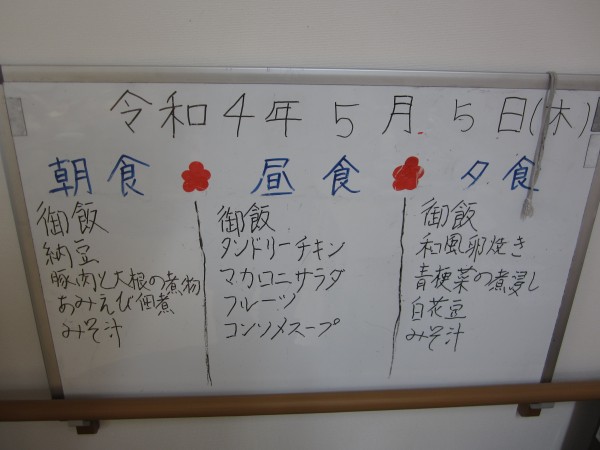 令和4年5月5日(木)
朝食 昼食 夕食
御飯
納豆
豚肉と大根の煮物
あみえび佃煮
みそ汁
御飯
タンドリーチキン
マカロニサラダ
フルーツ
コンソメスープ
御飯
和風卵焼き
青梗菜の煮浸し
白花豆
みそ汁